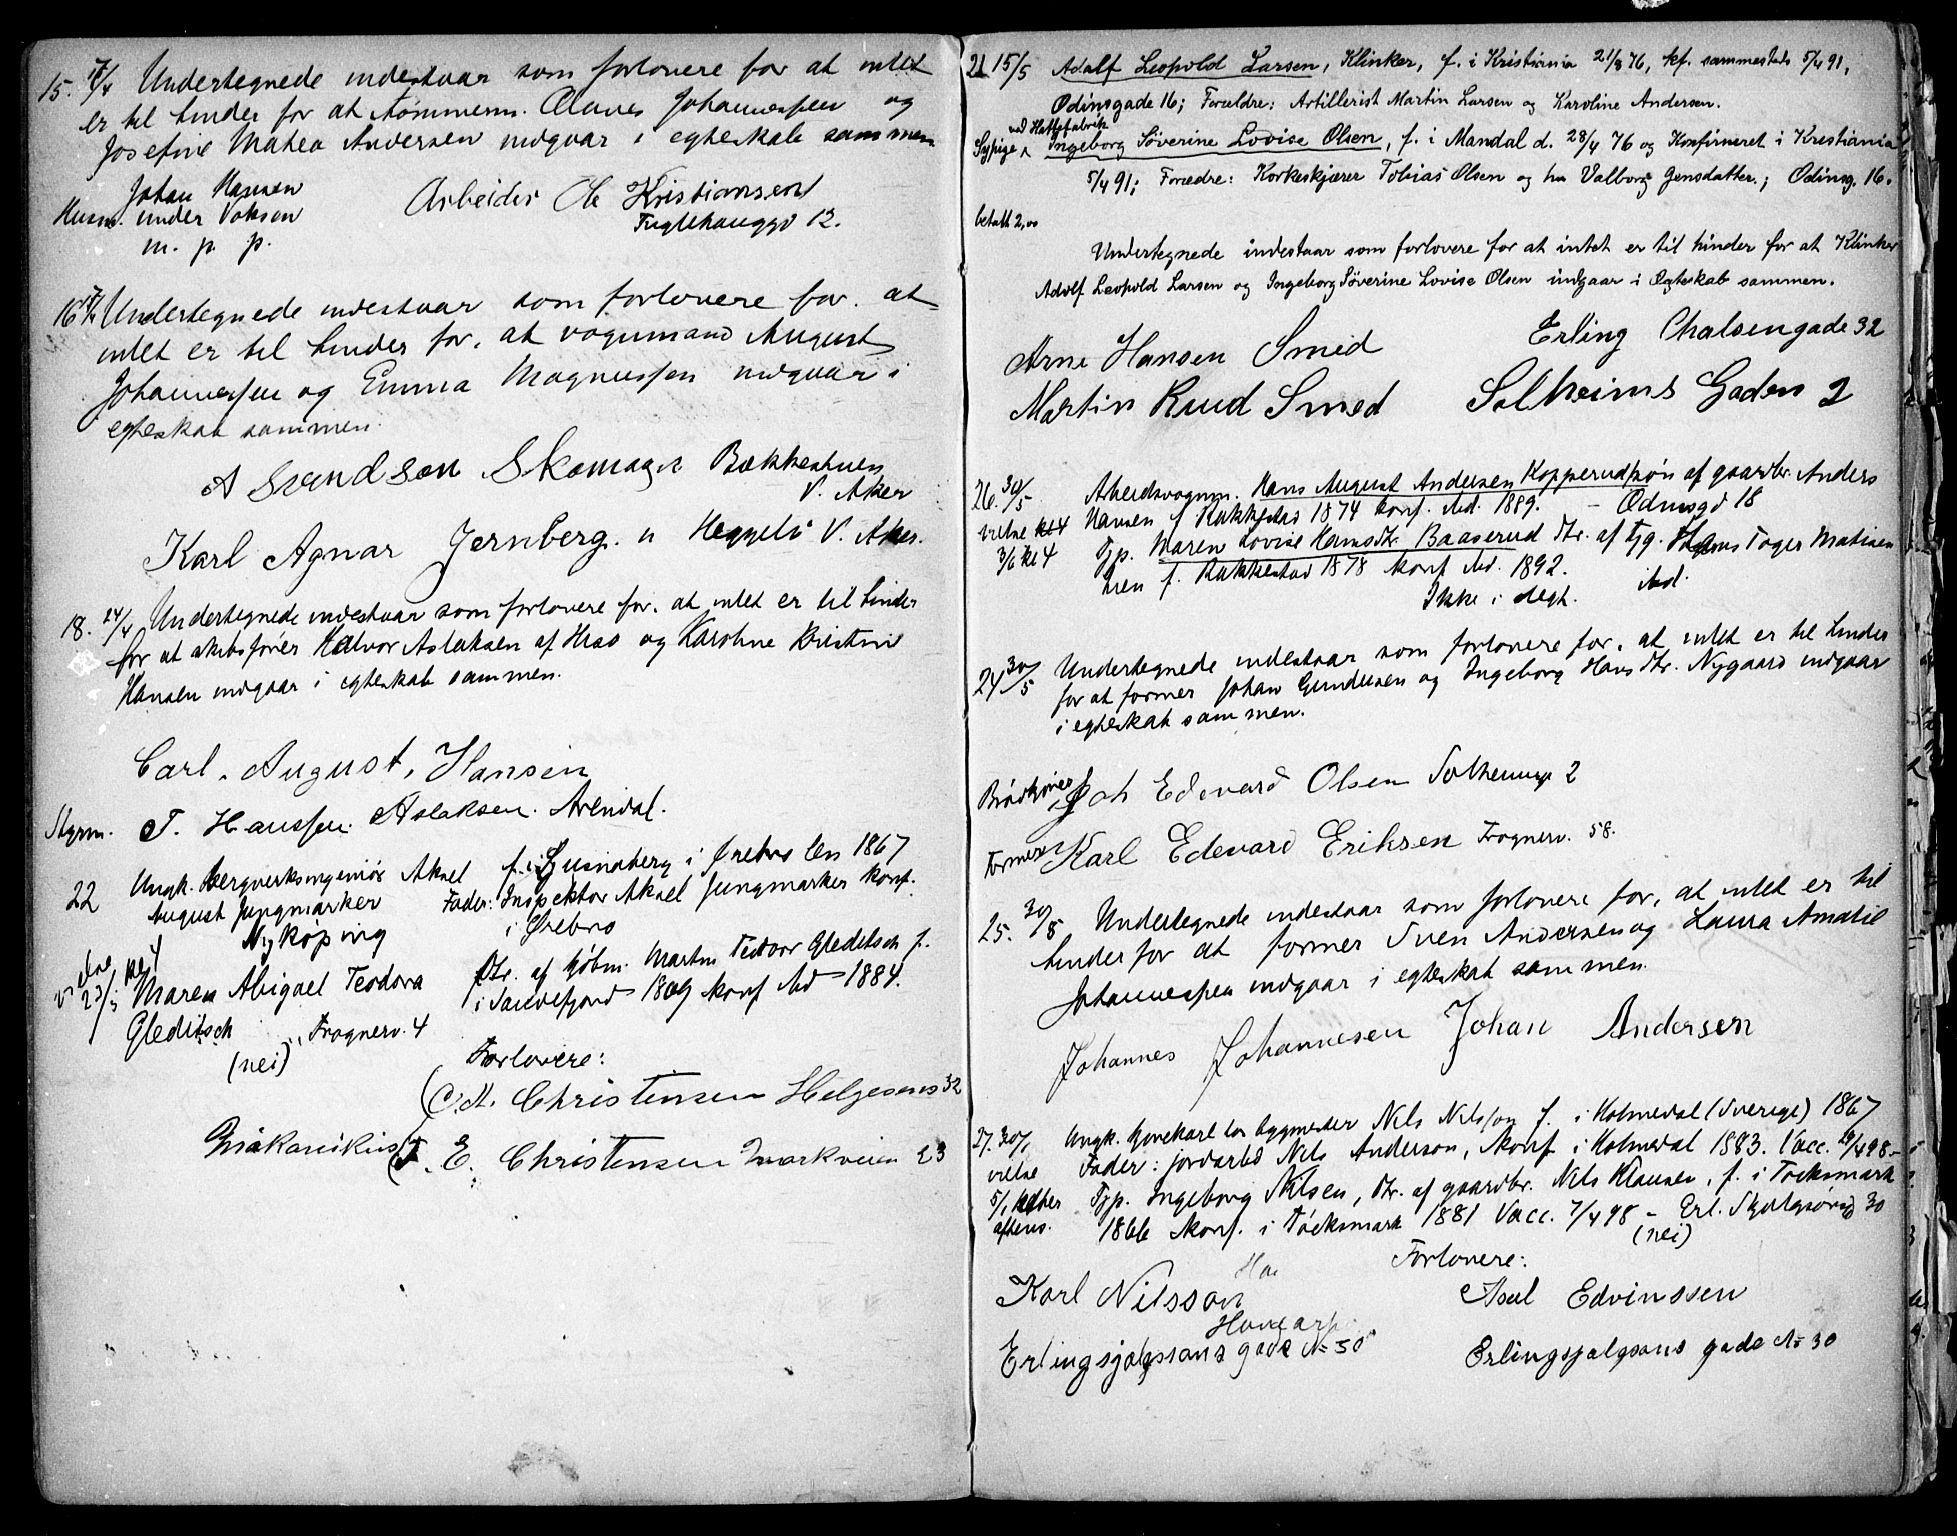 15. 17/4 Undertegnede indestaar som forlovere for at intet
er til hinder for at Tømmerm. Olaves Johannessen og
Josefine Matea Andersen indgaar i egteskab sammen
Johan Hansen
Husm. under Voksen
m. p. p.
Arbeider Ole Kristiansen
Fuglehauggd 12.
16 Undertegnede indestaar som forlovere for. at
intet er til hinder for, at vognmand August
Johannessen og Emma Magnussen indgaar i
egteskab sammen.
A Svendson Skomager Bækkestuen
V. Aker
Karl Agnar Jernberg. Heggeli V. Aker.
18. 24/4 Undertegnede indestaar som forlovere for. at intet er til hinder
for at skibsfører Halvor Aslaksen af Hisø og Karoline Kristine
Hansen indgaar i egteskab sammen.
Carl. August. Hansen
Styrm. T. Hanssen Aslaksen. Arendal.
22 Ungk. Bergverksingeniør Aksel
August Jungmarker
Nykøping
f. i Ljusnaberg i Ørebro len 1867
Fader: Inspektor Aksel Jungmarker konf.
i Ørebro
vielse
23/5 kl 4
Maren Abigael Teodora
Gleditsch Frognerv. 4
(nei)
Dtr. af Kjøbm. Martin Teodor Gleditsch f.
i Sandefjord 1869 konf ibd 1884.
Forlovere:
O. M. Christensen Helgesens 32
Mekanikus
E. Christensen Markveien 23
21 15/5 Adolf Leopold Larsen, Klinker, f. i Kristiania 21/8 76, kf. sammesteds 5/4 91,
Odinsgade 16; Forældre: Artillerist Martin Larsen og Karoline Andersen.
ved Hattefabrik
Sypige Ingeborg Söverine Lovise Olsen, f. i Mandal d. 28/4 76 og Konfirmeret i Kristiania
5/4 91; Forældre: Korkeskjærer Tobias Olsen og hu Valborg Jensdatter.; Odinsg. 16.
betalt 2,00
Undertegnede indestaar som forlovere for at intet er til hinder for at Klinker
Adolf Leopold Larsen og Ingeborg Söverine Lovise Olsen indgaar i Ægteskab sammen.
Arne Hansen Smed Erling Chalsengade 32
Martin Ruud Smed Solheims Gaden 2
26. 30/5 Arbeidsvognm. Hans August Andersen Kopperud søn af gaardbr. Anders
vielse Hansen f. Rakkestad 1874 konf. ibd. 1889. – Odinsgd 18
3/6 kl 4 Tjp. Maren Lovise Hansdtr. Baaserud Dtr. af Hans Toger Matisen
f. Rakkestad 1878 konf ibd. 1892. ibd.
Ikke i slegt.
24 30/5 Undertegnede indestaar som forlovere for, at intet er til hinder
for at former Johan Gundersen og Ingeborg Hansdtr. Nygaard indgaar
i egteskab sammen.
Brødkjører Joh Edevard Olsen Solheimsg 2
Former Karl Edevard Eriksen Frognerv. 58.
25. 30/5 Undertegnede indestaar som forlovere for, at intet er til
hinder for at former Sven Andersen og Laura Amatie
Johannessen indgaar i egteskab sammen.
Johannes Johannesen Johan Andersen
27. Ungk. Gaardkarl bygmester Nils Nilsson f. i Holmedal (Sverige) 1867
vielse Fader: jordarbd Nils Anderson, konf i Holmedal 1883. Vacc. 29/4 98 –
Tjp. Ingeborg Nilsen, dtr. af gaardbr. Nils Klausen, f. i Töcksmark
1866 konf. i Töcksmark 1881 Vacc. 7/4 98 – Erl. Skjalgsønsgd 30
(nei)
Forlovere:
Karl Nilsson Axel Edvinssen
Erlingsjalgssons gade № 30 Erlingsjalgsons gade № 30